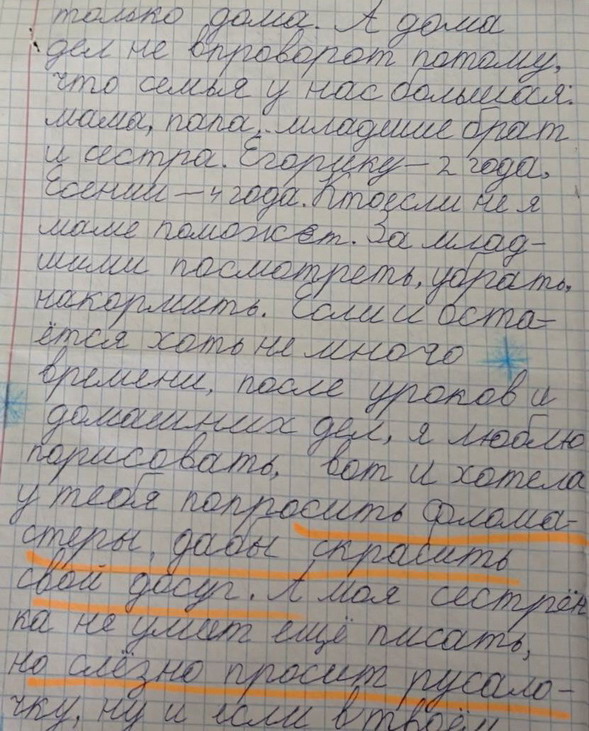 только дома. А дома
дел не впроворот потому,
что семья у нас большая:
мама, папа, младшие брат
и сестра. Егорику – 2 года,
Есении – 4 года. Кто если не я
маме поможет. За млад-
шими посмотреть, убрать,
накормить. Если и оста-
ётся хоть не много
времени, после уроков и
домашних дел, я люблю
порисовать, вот и хотела
у тебя попросить флома-
стеры, дабы скрасить
свой досуг. А моя сестрён
ка не умеет ещё писать,
но слёзно просит русало-
чку, ну и если в твоём